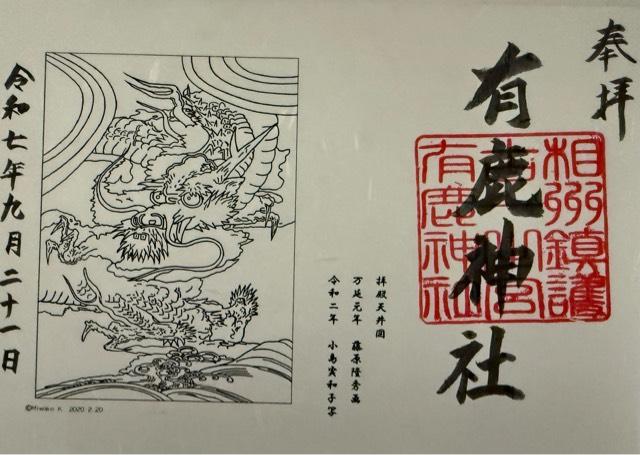 奉拝
有鹿神社
相州鎮護
有鹿神社
拝殿天井図
万延元年 藤原隆秀画
令和二年 小島実和子写
令和七年九月二十一日
©Miwako K. 2020.2.20